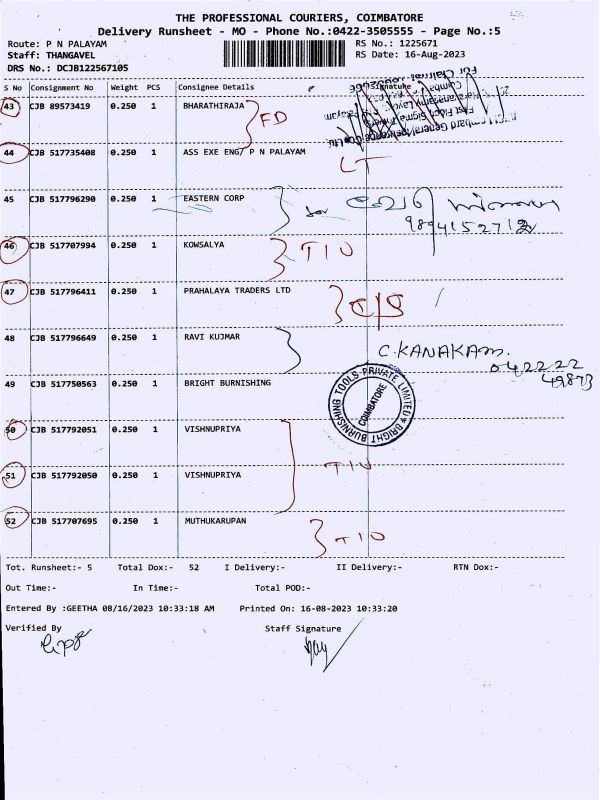 THE PROFESSIONAL COURIERS, COIMBATORE
Delivery Runsheet - MO - Phone No.:0422-3505555 - Page No.:5
Route: P N PALAYAM RS No.: 1225671
Staff: THANGAVEL RS Date: 16-Aug-2023
DRS No.: DCJB122567105
S No Consignment No Weight PCS Consignee Details Signature
43 CJB 89573419 0.250 1 BHARATHIRAJA FD
44 CJB 517735408 0.250 1 ASS EXE ENG/ P N PALAYAM LT
45 CJB 517796290 0.250 1 EASTERN CORP
46 CJB 517707994 0.250 1 KOWSALYA TIU
47 CJB 517796411 0.250 1 PRAHALAYA TRADERS LTD
48 CJB 517796649 0.250 1 RAVI KUJMAR C. KANAKAM.
042222
49873
49 CJB 517750563 0.250 1 BRIGHT BURNISHING
BRIGHT BURNISHING TOOLS PRIVATE LIMITED
COIMBATORE
50 CJB 517792051 0.250 1 VISHNUPRIYA
51 CJB 517792050 0.250 1 VISHNUPRIYA TIU
52 CJB 517707695 0.250 1 MUTHUKARUPAN TIU
Tot. Runsheet:- 5 Total Dox:- 52 I Delivery:- II Delivery:- RTN Dox:-
Out Time:- In Time:- Total POD:-
Entered By :GEETHA 08/16/2023 10:33:18 AM Printed On: 16-08-2023 10:33:20
Verified By Staff Signature